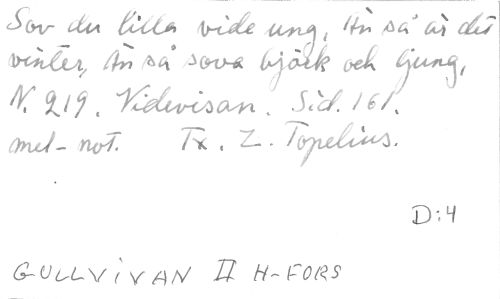 Sov du lilla vide ung, Än så är det
vinter, Än så sova björk och ljung,
N. 219. Videvisan. Sid. 161.
mel-not. Tx. Z. Topelius.
D:4
GULLVIVAN II H-FORS